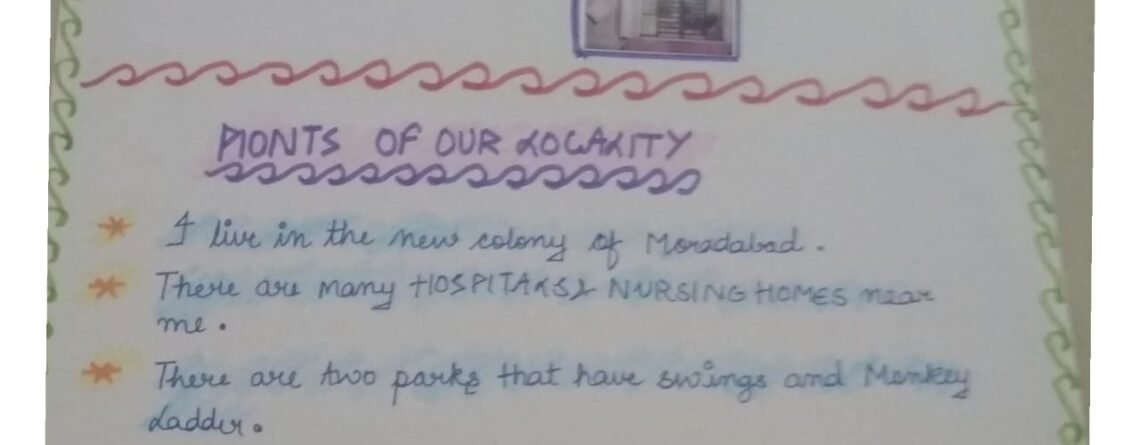 PIONTS OF OUR LOCALITY
* I live in the new colony of Moradabad.
* There are many HOSPITALS & NURSING HOMES near
me.
* There are two parks that have swings and Monkey
Ladder.